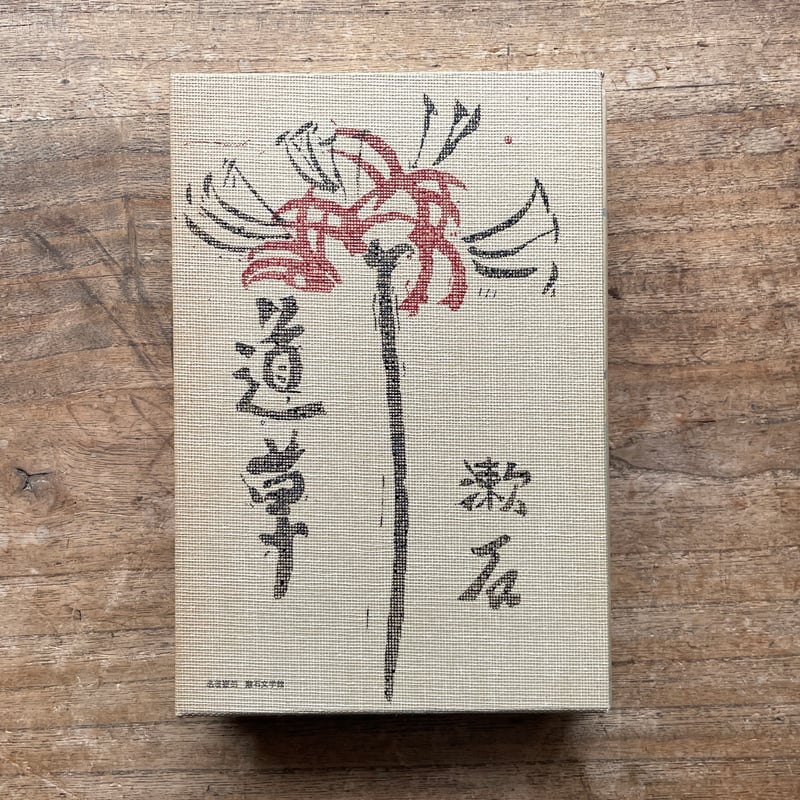 道草
漱石
名著復刻 漱石文学館